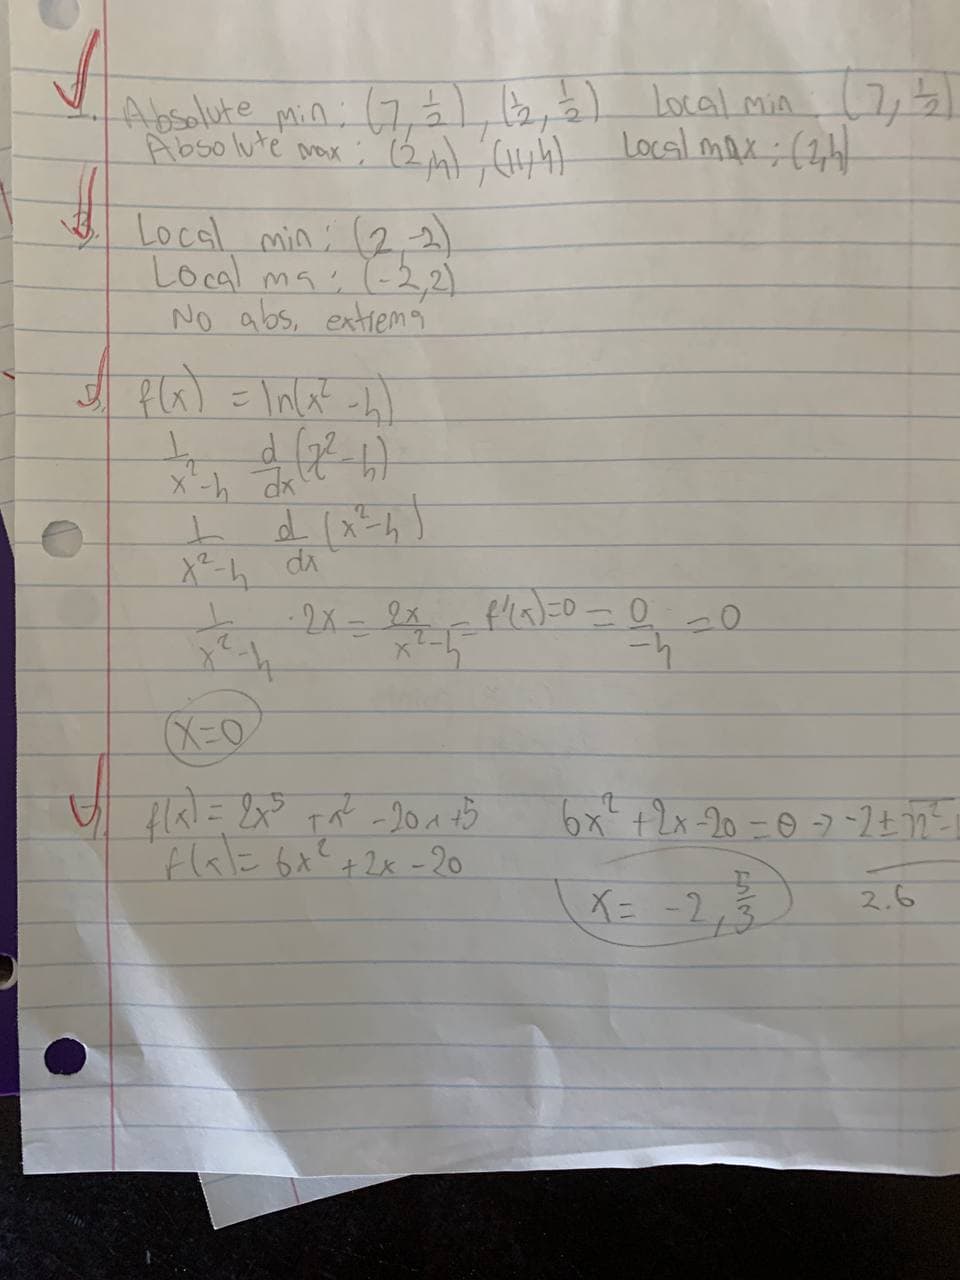 1. Absolute min: (7, 1/2), (1/2, 1/2) Local min: (7, 1/2)
Absolute max: (2,4), (11,4) Local max: (2,4)
3. Local min: (2,-2)
Local ma: (-2,2)
No abs. extrema
5. f(x) = ln(x² - 4)
1/(x²-4) d/dx (x²-4)
1/(x²-4) d/dx (x²-4)
1/(x²-4) · 2x = 2x/(x²-4) = f'(x)=0 = 0/-4 = 0
x=0
f(x) = 2x⁵ + x² - 20x + 5 6x² + 2x - 20 = 0 → -2 ±
f(x) = 6x² + 2x - 20
x = -2, 5/3 2.6